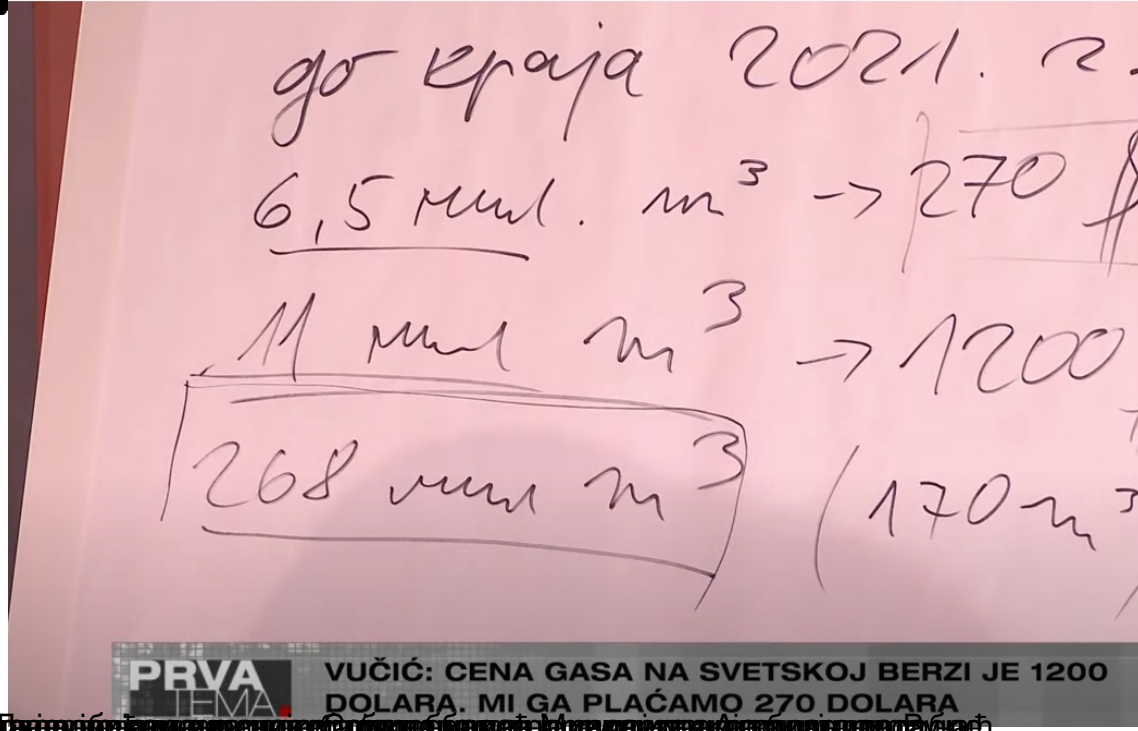 до краја 2021. г.
6,5 мил. m³ -> 270 $
11 мил m³ -> 1200
268 мил m³ (170 m³
PRVA
TEMA.
VUČIĆ: CENA GASA NA SVETSKOJ BERZI JE 1200
DOLARA. MI GA PLAĆAMO 270 DOLARA